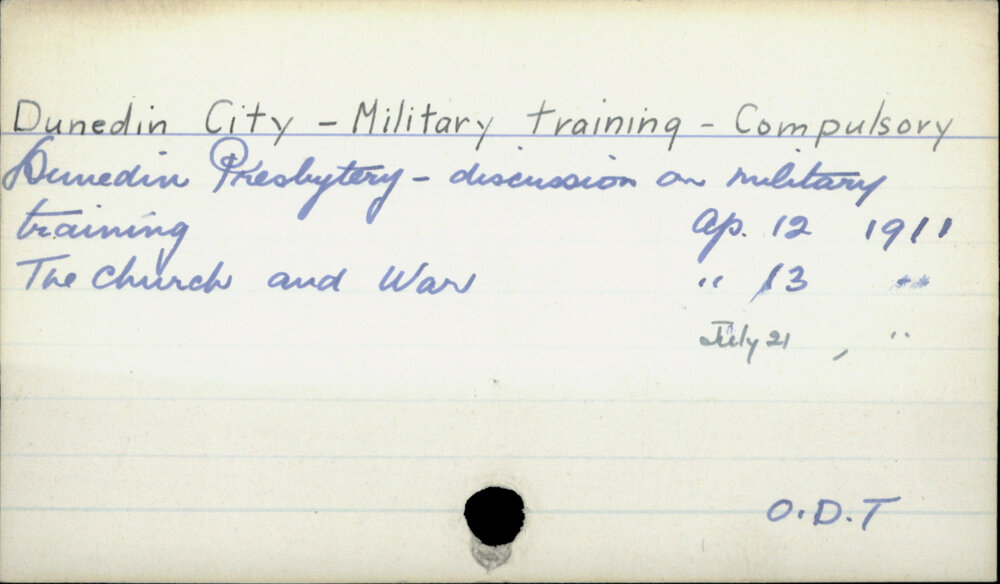 Dunedin City - Military training - Compulsory
Dunedin Presbytery - discussion on military
training Ap. 12 1911
The Church and War " 13 "
July 21 , "
O.D.T